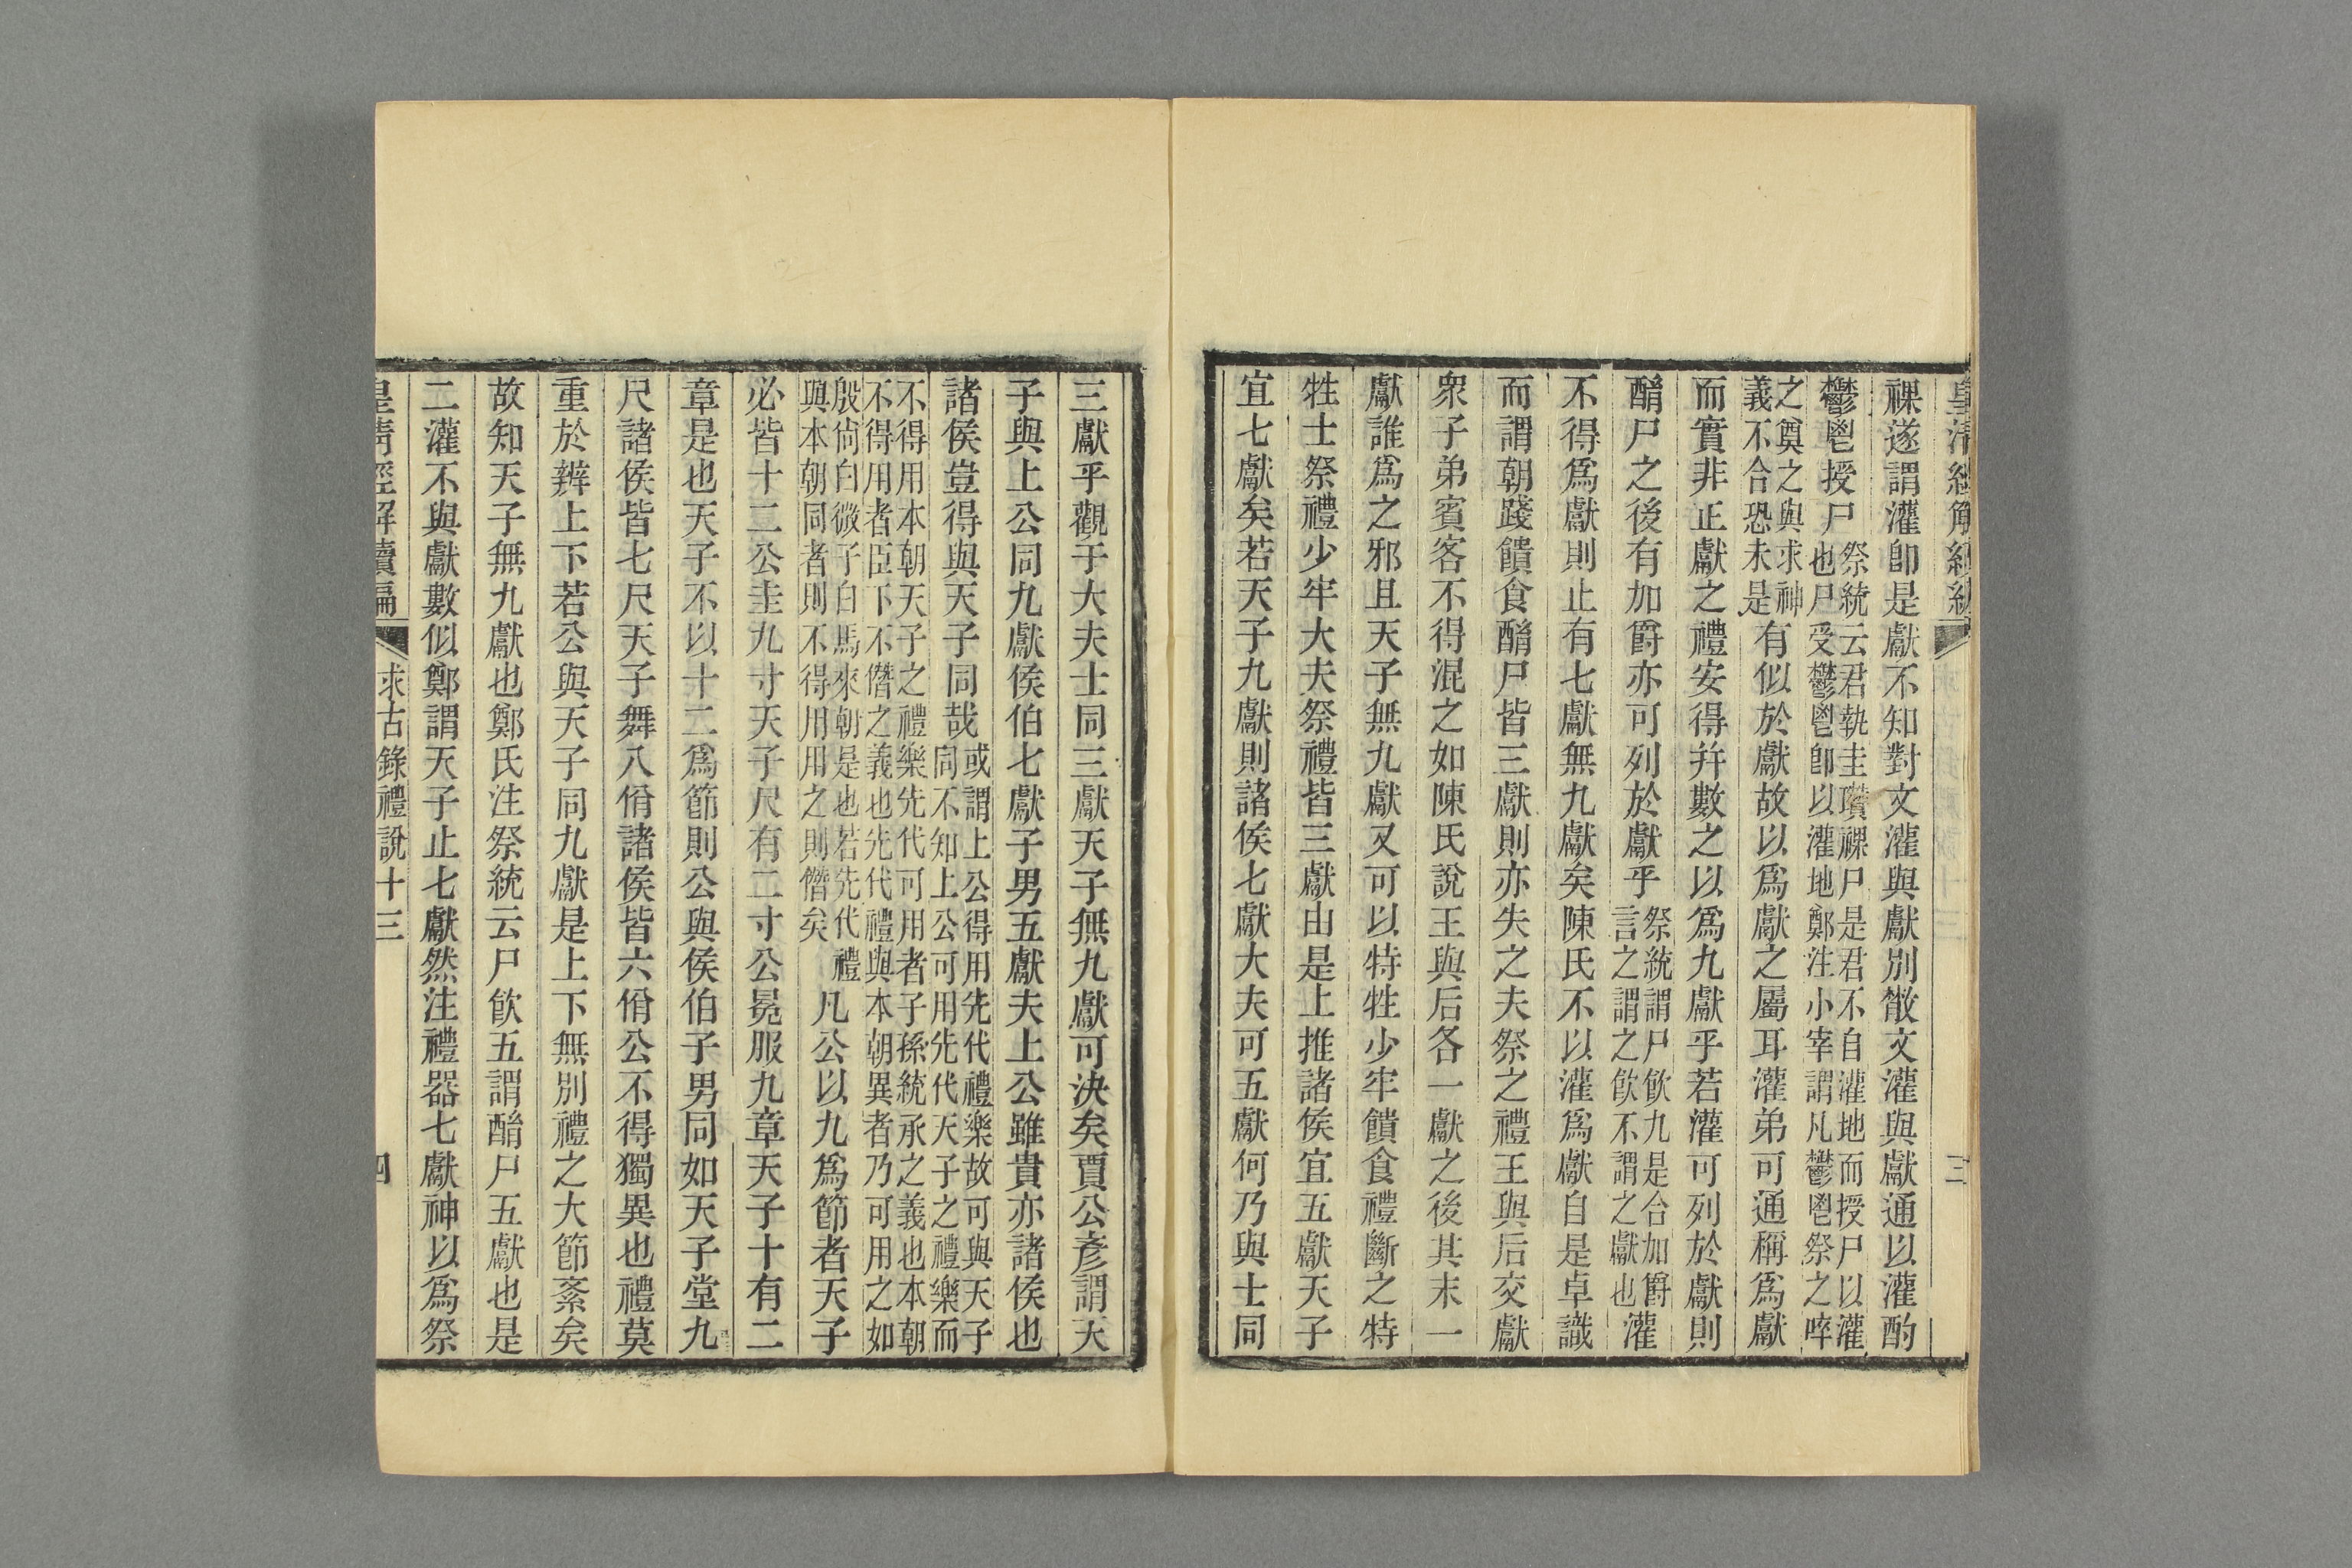 皇清經解續編
三
祼遂謂灌卽是獻不知對文灌與獻別散文灌與獻通以灌酌
鬱鬯授尸祭統云君執圭瓚祼尸是君不自灌地而授尸以灌
也尸受鬱鬯卽以灌地鄭注小宰謂凡鬱鬯祭之啐
之奠之與求神
義不合恐未是有似於獻故以爲獻之屬耳灌弟可通稱爲獻
而實非正獻之禮安得幷數之以爲九獻乎若灌可列於獻則
酳尸之後有加爵亦可列於獻乎祭統謂尸飮九是合加爵
言之謂之飮不謂之獻也灌
不得爲獻則止有七獻無九獻矣陳氏不以灌爲獻自是卓識
而謂朝踐饋食酳尸皆三獻則亦失之夫祭之禮王與后交獻
衆子弟賓客不得混之如陳氏說王與后各一獻之後其末一
獻誰爲之邪且天子無九獻又可以特牲少牢饋食禮斷之特
牲士祭禮少牢大夫祭禮皆三獻由是上推諸侯宜五獻天子
宜七獻矣若天子九獻則諸侯七獻大夫可五獻何乃與士同
三獻乎觀于大夫士同三獻天子無九獻可決矣賈公彥謂天
子與上公同九獻侯伯七獻子男五獻夫上公雖貴亦諸侯也
諸侯豈得與天子同哉或謂上公得用先代禮樂故可與天子
同不知上公可用先代天子之禮樂而
不得用本朝天子之禮樂先代可用者子孫統承之義也本朝
不得用者臣下不僭之義也先代禮與本朝異者乃可用之如
殷尙白微子白馬來朝是也若先代禮
與本朝同者則不得用用之則僭矣凡公以九爲節者天子
必皆十二公圭九寸天子尺有二寸公冕服九章天子十有二
章是也天子不以十二爲節則公與侯伯子男同如天子堂九
尺諸侯皆七尺天子舞八佾諸侯皆六佾公不得獨異也禮莫
重於辨上下若公與天子同九獻是上下無別禮之大節紊矣
故知天子無九獻也鄭氏注祭統云尸飮五謂酳尸五獻也是
二灌不與獻數似鄭謂天子止七獻然注禮器七獻神以爲祭
皇淸經解續編
求古錄禮說十三
四